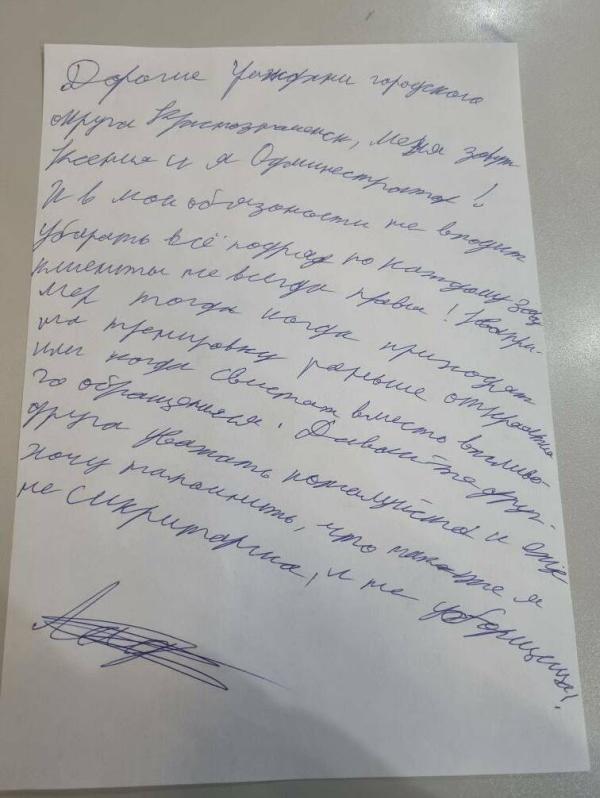 Дорогие Граждани городского
округа Краснознаменск, меня зовут
Ксения и я Администратор!
И в мои обязоности не входит
убирать всё подряд по каждому зову
клиенты не всегда правы! Напри-
мер тогда когда приходят
на тренировку раньше открытия
или когда свистят вместо вежливо-
го обращения. Давайте друг-
друга уважать пожалуйста и ещё
хочу напомнить, что также я
не сикритарша, и не уборщица!